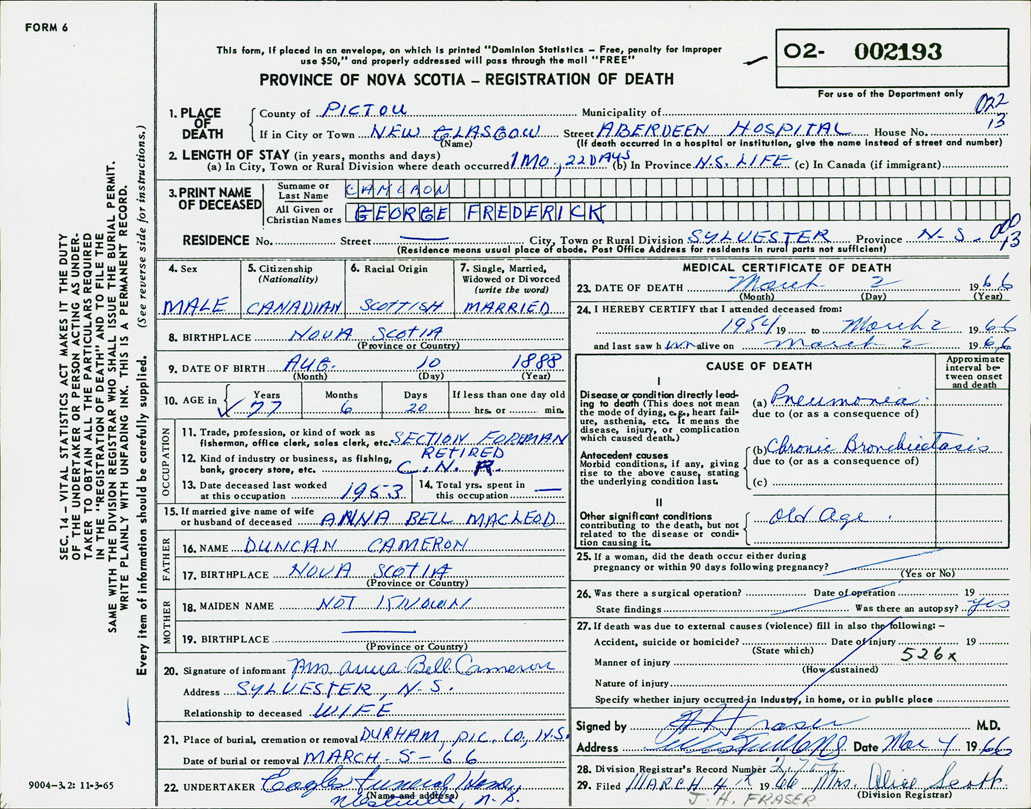 FORM 6
This form, if placed in an envelope, on which is printed "Dominion Statistics – Free, penalty for improper
use $50," and properly addressed will pass through the mail "FREE"
PROVINCE OF NOVA SCOTIA – REGISTRATION OF DEATH
O2- 002193
For use of the Department only
022
13
1. PLACE OF DEATH
County of PICTOU Municipality of
If in City or Town NEW GLASGOW Street ABERDEEN HOSPITAL House No.
(Name) (If death occurred in a hospital or institution, give the name instead of street and number)
2. LENGTH OF STAY (in years, months and days)
(a) In City, Town or Rural Division where death occurred 1 MO., 22 DAYS (b) In Province N.S. LIFE (c) In Canada (if immigrant)
3. PRINT NAME OF DECEASED
Surname or Last Name CAMERON
All Given or Christian Names GEORGE FREDERICK
RESIDENCE No. Street City, Town or Rural Division SYLVESTER Province N-S. 000
13
(Residence means usual place of abode. Post Office Address for residents in rural parts not sufficient)
4. Sex
MALE
5. Citizenship (Nationality)
CANADIAN
6. Racial Origin
SCOTTISH
7. Single, Married, Widowed or Divorced (write the word)
MARRIED
8. BIRTHPLACE NOVA SCOTIA
(Province or Country)
9. DATE OF BIRTH AUG. 10 1888
(Month) (Day) (Year)
10. AGE in Years 77 Months 6 Days 20 If less than one day old hrs. or min.
OCCUPATION
11. Trade, profession, or kind of work as fisherman, office clerk, sales clerk, etc. SECTION FOREMAN
RETIRED
12. Kind of industry or business, as fishing, bank, grocery store, etc. C.N.R.
13. Date deceased last worked at this occupation 1953
14. Total yrs. spent in this occupation
15. If married give name of wife or husband of deceased ANNA BELL MACLEOD
FATHER
16. NAME DUNCAN CAMERON
17. BIRTHPLACE NOVA SCOTIA
(Province or Country)
MOTHER
18. MAIDEN NAME NOT KNOWN
19. BIRTHPLACE
(Province or Country)
20. Signature of informant Mrs. Anna Bell Cameron
Address SYLVESTER, N-S.
Relationship to deceased WIFE
21. Place of burial, cremation or removal DURHAM, PIC. CO., N.S.
Date of burial or removal MARCH-5-66
22. UNDERTAKER Eagles Funeral Home
(Name and address) Westville, N.S.
MEDICAL CERTIFICATE OF DEATH
23. DATE OF DEATH March 2 1966
(Month) (Day) (Year)
24. I HEREBY CERTIFY that I attended deceased from:
1954 19 to March 2 1966
and last saw him alive on March 2 1966
CAUSE OF DEATH
Approximate interval between onset and death
I
Disease or condition directly leading to death (This does not mean the mode of dying, e.g., heart failure, asthenia, etc. It means the disease, injury, or complication which caused death.)
(a) Pneumonia
due to (or as a consequence of)
Antecedent causes
Morbid conditions, if any, giving rise to the above cause, stating the underlying condition last.
(b) Chronic Bronchiectasis
due to (or as a consequence of)
(c)
II
Other significant conditions contributing to the death, but not related to the disease or condition causing it.
Old Age.
25. If a woman, did the death occur either during pregnancy or within 90 days following pregnancy?
(Yes or No)
26. Was there a surgical operation? Date of operation 19
State findings Was there an autopsy? yes
27. If death was due to external causes (violence) fill in also the following: –
Accident, suicide or homicide? Date of injury 19
(State which)
526x
Manner of injury
(How sustained)
Nature of injury
Specify whether injury occurred in industry, in home, or in public place
Signed by Fraser M.D.
Address Date Mar 4 1966
28. Division Registrar's Record Number
29. Filed MARCH 4 1966 Mrs. Alice Scott
(Division Registrar)
J. H. FRASER
SEC. 14 – VITAL STATISTICS ACT MAKES IT THE DUTY
OF THE UNDERTAKER OR PERSON ACTING AS UNDER-
TAKER TO OBTAIN ALL THE PARTICULARS REQUIRED
IN THE "REGISTRATION OF DEATH" AND TO FILE THE
SAME WITH THE DIVISION REGISTRAR WHO SHALL ISSUE THE BURIAL PERMIT.
WRITE PLAINLY WITH UNFADING INK. THIS IS A PERMANENT RECORD.
Every item of information should be carefully supplied. (See reverse side for instructions.)
9004-3.2: 11-3-65